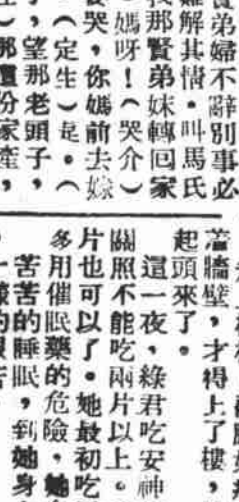 賢弟婦不辭別事必
難解其情。叫馬氏
我那賢弟妹轉回家
媽呀！（哭介）
哭，你媽前去嫁
（定生）是。（
，望那老頭子，
那遭份家產，
着牆壁，才得上了樓，
起頭來了。
這一夜，綠君吃安神
關照不能吃兩片以上。
片也可以了。她最初吃
多用催眠藥的危險，她
苦苦的睡眠，到她身